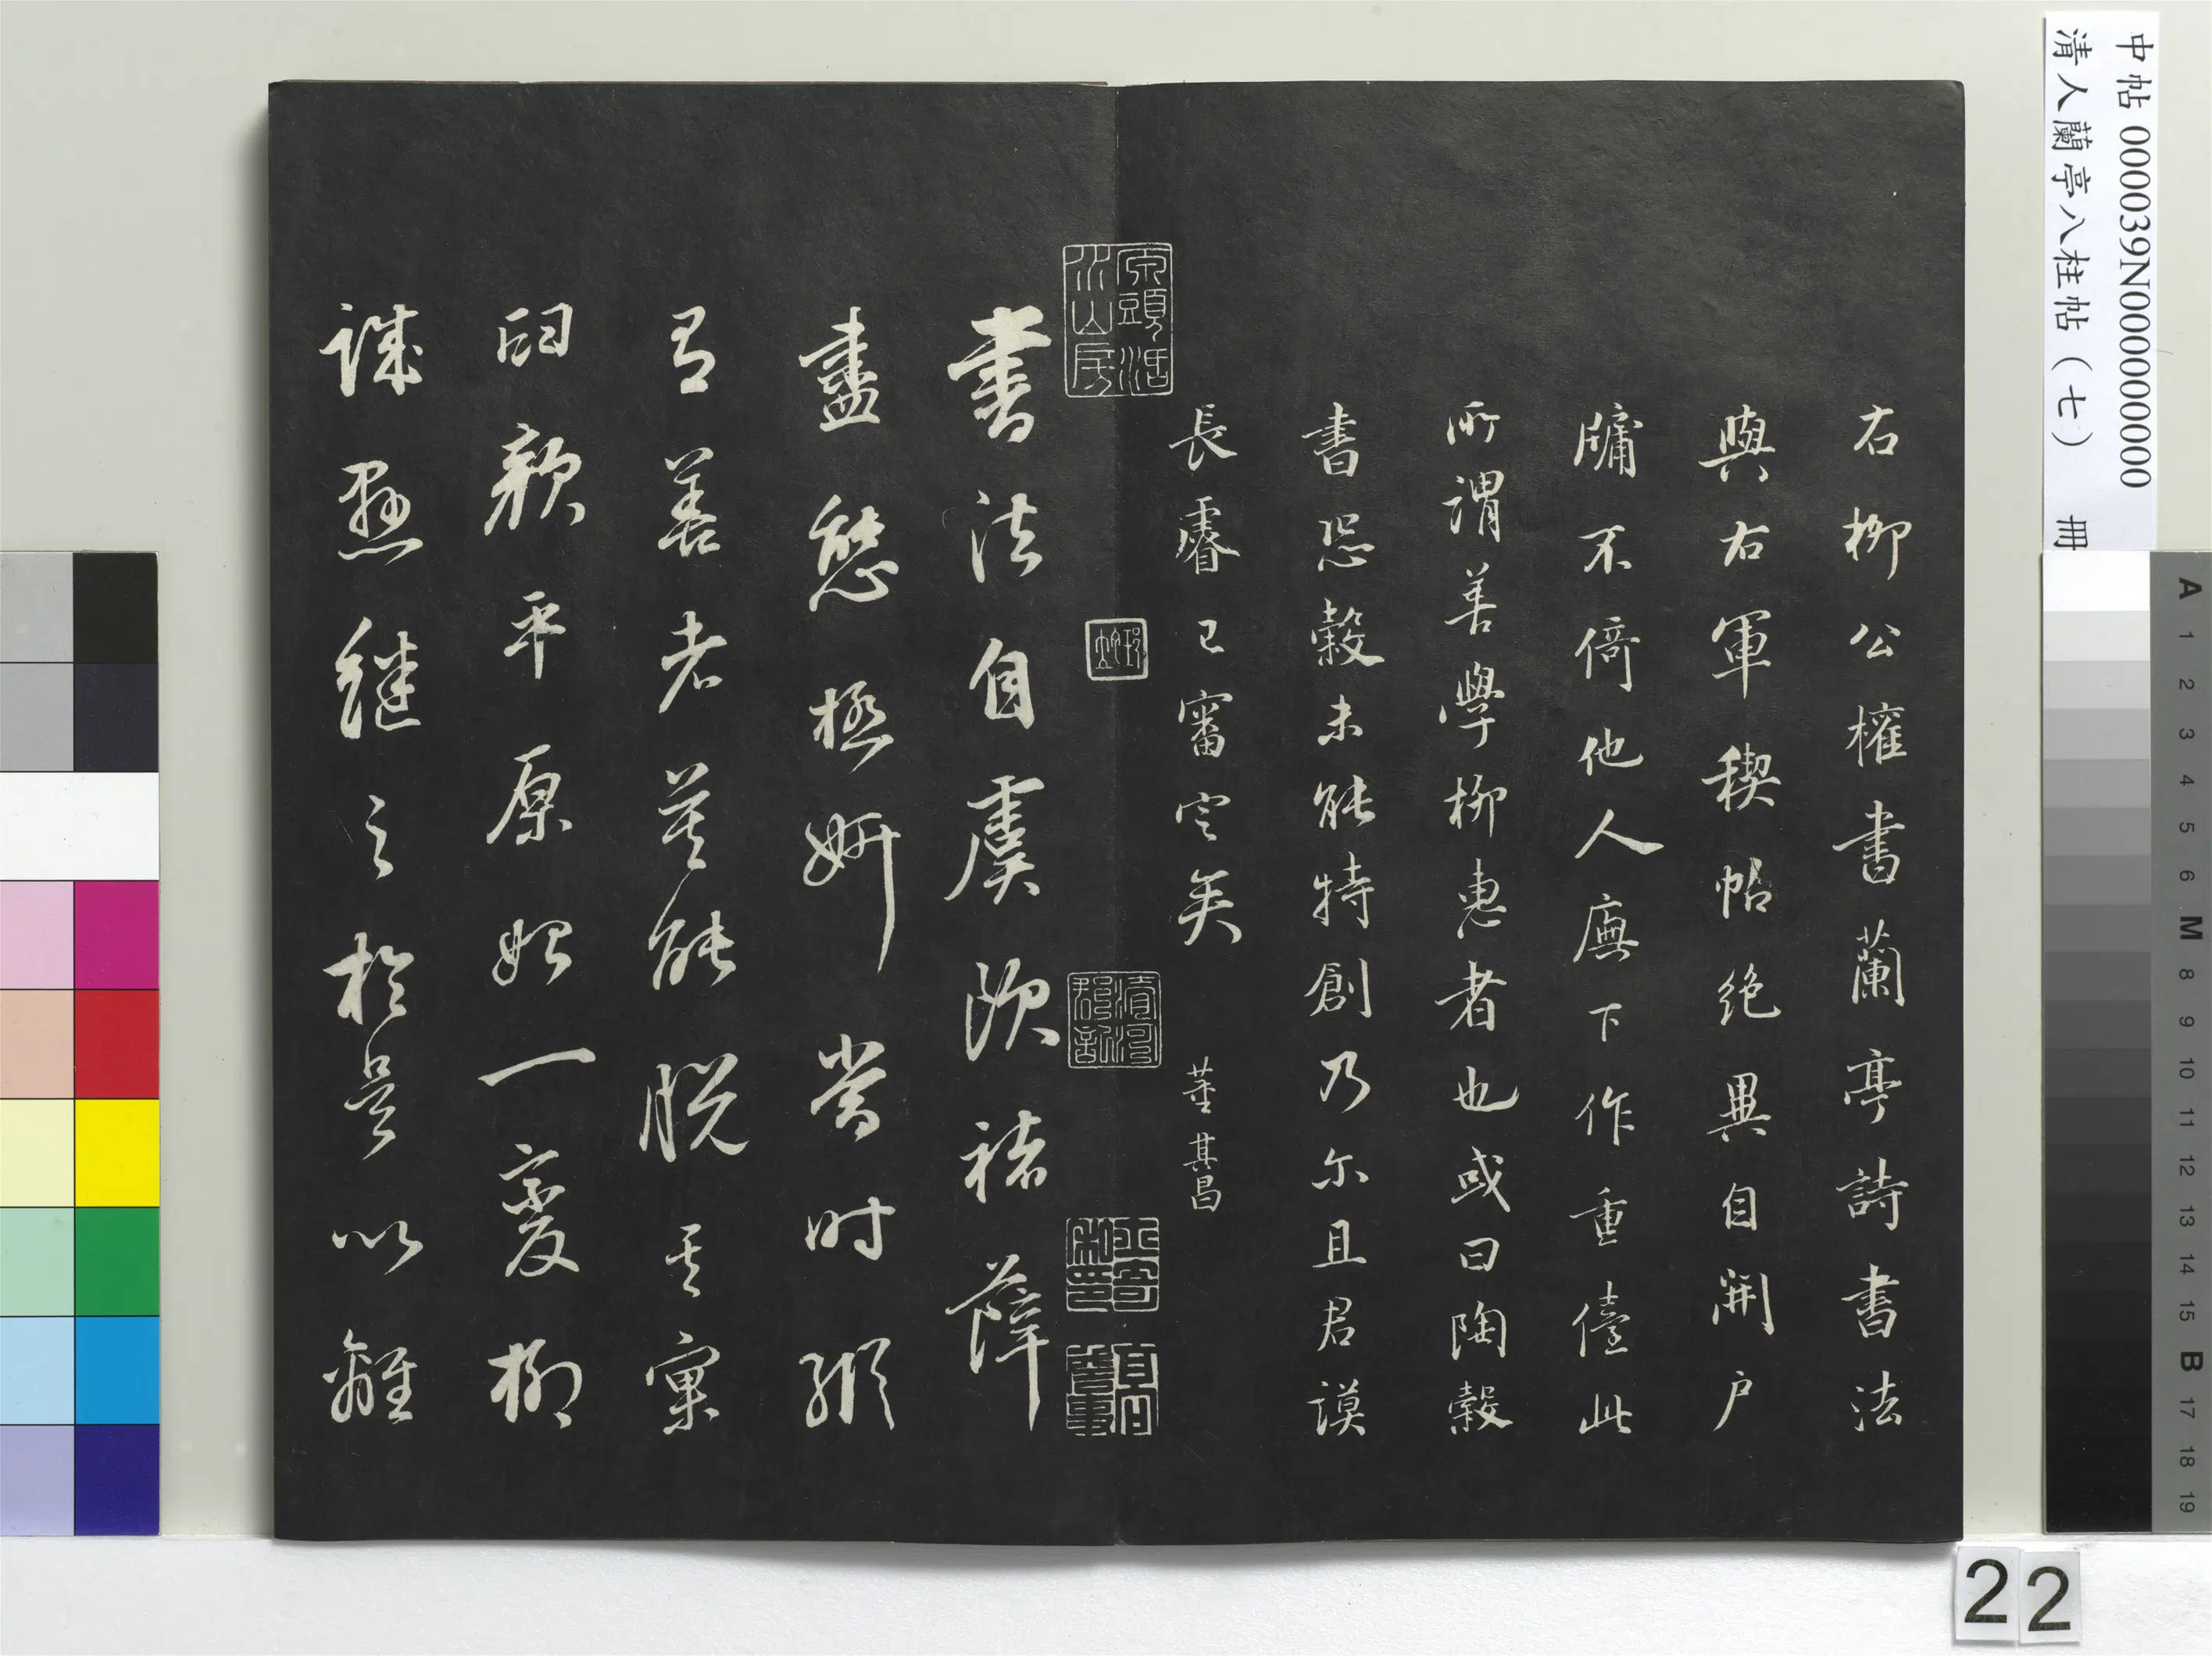 中帖 000039N000000000
清人蘭亭八柱帖（七） 冊
右柳公權書蘭亭詩書法
與右軍稧帖絶異自開戶
牖不倚他人廡下作重儓此
所謂善學柳惠者也或曰陶縠
書恐縠未能特創乃尓且君謨
長睿已審定矣 董其昌
書法自虞欧褚薛
盡態極妍當时縱
有善者莫能脫其窠
臼顏平原始一變柳
誠懸繼之於是以離
A 1 2 3 4 5 6 M 8 9 10 11 12 13 14 15 B 17 18 19
22